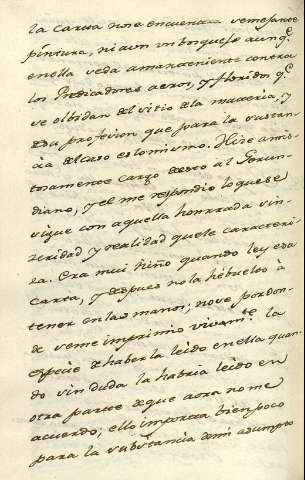 la Carta no se encuentra semejante
pintura, ni aun un bosquejo aunq.e
en ella se da amargamente contra
los Predicadores aereos, y floridos q.e
se olbidan del sitio de la materia, y
de su profesion que para la sustan-
cia del caso es lo mismo. Hize amis-
tosamente cargo de esto al Gerun-
diano, y el me respondio lo que se
sigue con aquella honrrada sin-
zeridad y realidad que le caracteri-
za. Era mui Niño quando ley esa
Carta, y despues no la hè buelto à
tener en las manos; no sè por don-
de se me imprimiò vivam.te la
especie de haberla leìdo en ella quan-
do sin duda la habria leìdo en
otra parte de que aora no me
acuerdo; ello importa bien poco
para la substancia de mi asumpto